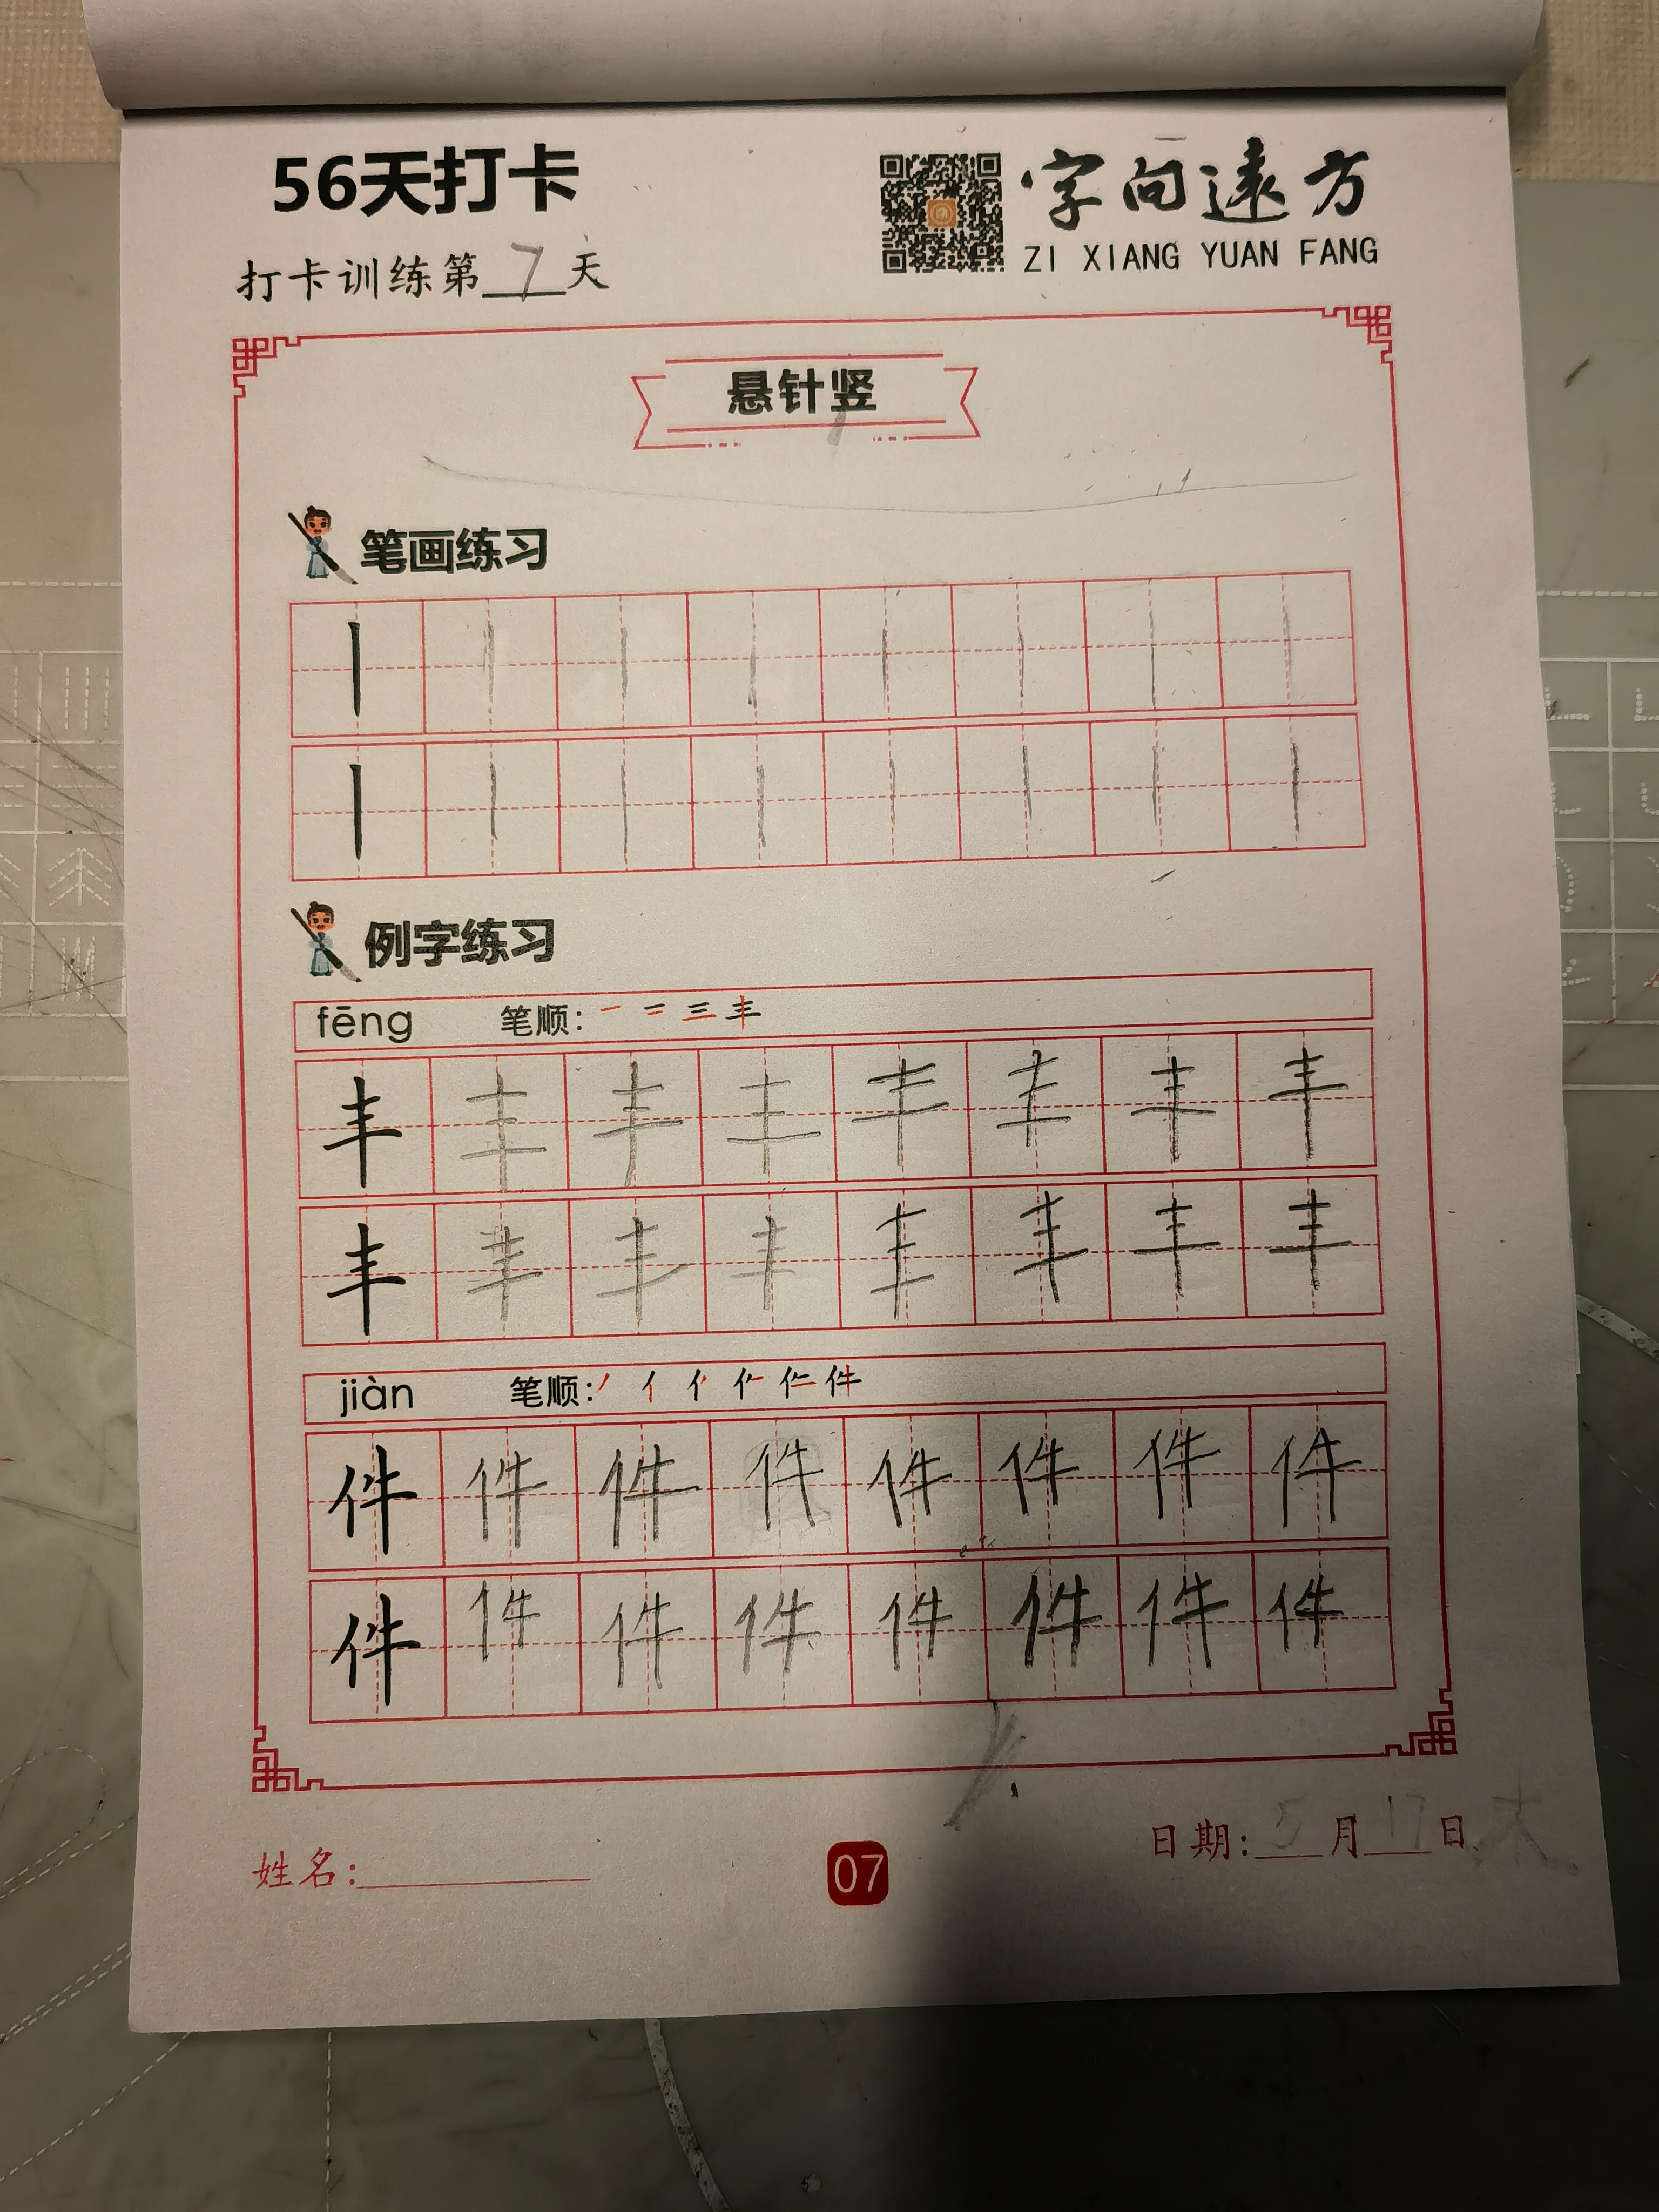 56天打卡
字向遠方
ZI XIANG YUAN FANG
打卡训练第7天
悬针竖
笔画练习
丨 丨 丨 丨 丨 丨 丨 丨
丨 丨 丨 丨 丨 丨 丨 丨
例字练习
fēng 笔顺: 一 二 三 丰
丰 丰 丰 丰 丰 丰 丰 丰
丰 丰 丰 丰 丰 丰 丰 丰
jiàn 笔顺: 丿 亻 件
件 件 件 件 件 件 件 件
件 件 件 件 件 件 件 件
姓名:
07
日期: 5月17日